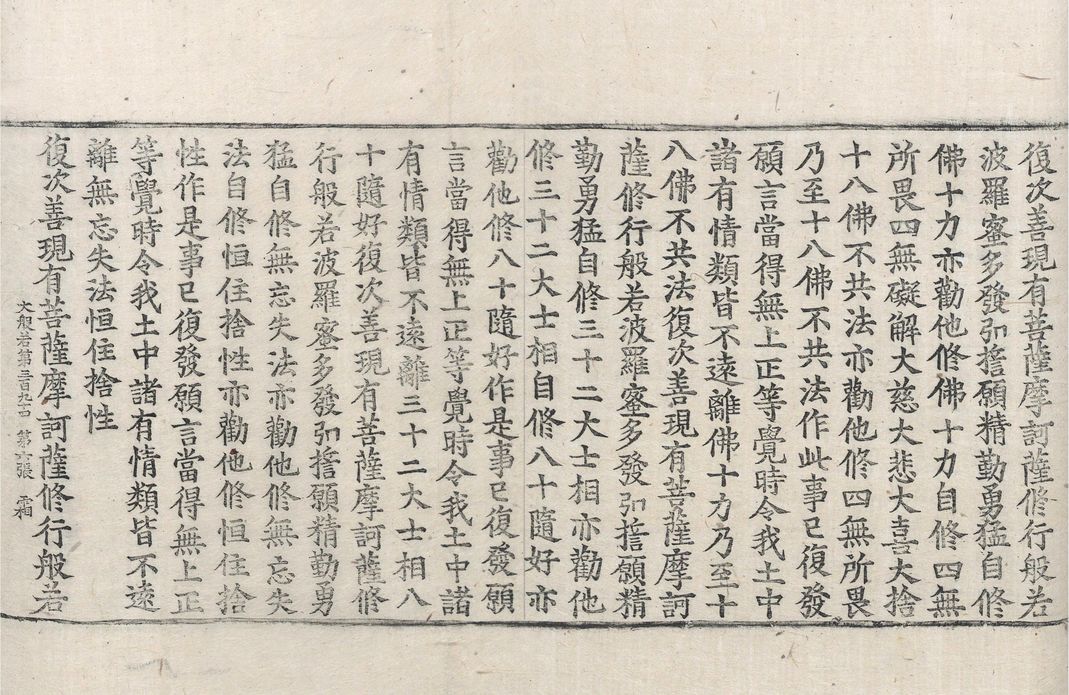 復次善現有菩薩摩訶薩修行般若
波羅蜜多發弘誓願精勤勇猛自修
佛十力亦勸他修佛十力自修四無
所畏四無礙解大慈大悲大喜大捨
十八佛不共法亦勸他修四無所畏
乃至十八佛不共法作此事已復發
願言當得無上正等覺時令我土中
諸有情類皆不遠離佛十力乃至十
八佛不共法復次善現有菩薩摩訶
薩修行般若波羅蜜多發弘誓願精
勤勇猛自修三十二大士相亦勸他
修三十二大士相自修八十隨好亦
勸他修八十隨好作是事已復發願
言當得無上正等覺時令我土中諸
有情類皆不遠離三十二大士相八
十隨好復次善現有菩薩摩訶薩修
行般若波羅蜜多發弘誓願精勤勇
猛自修無忘失法亦勸他修無忘失
法自修恒住捨性亦勸他修恒住捨
性作是事已復發願言當得無上正
等覺時令我土中諸有情類皆不遠
離無忘失法恒住捨性
大般若第三百九 第六張 霜
復次善現有菩薩摩訶薩修行般若